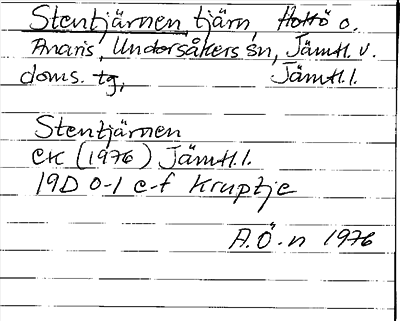 Stentjärnen tjärn, Hottö o.
Anaris, Undersåkers sn, Jämtl. v.
doms. tg, Jämtl. l.
Stentjärnen
ek (1976) Jämtl. l.
19D 0-1 e-f Kruptje
A.Ö-n 1976